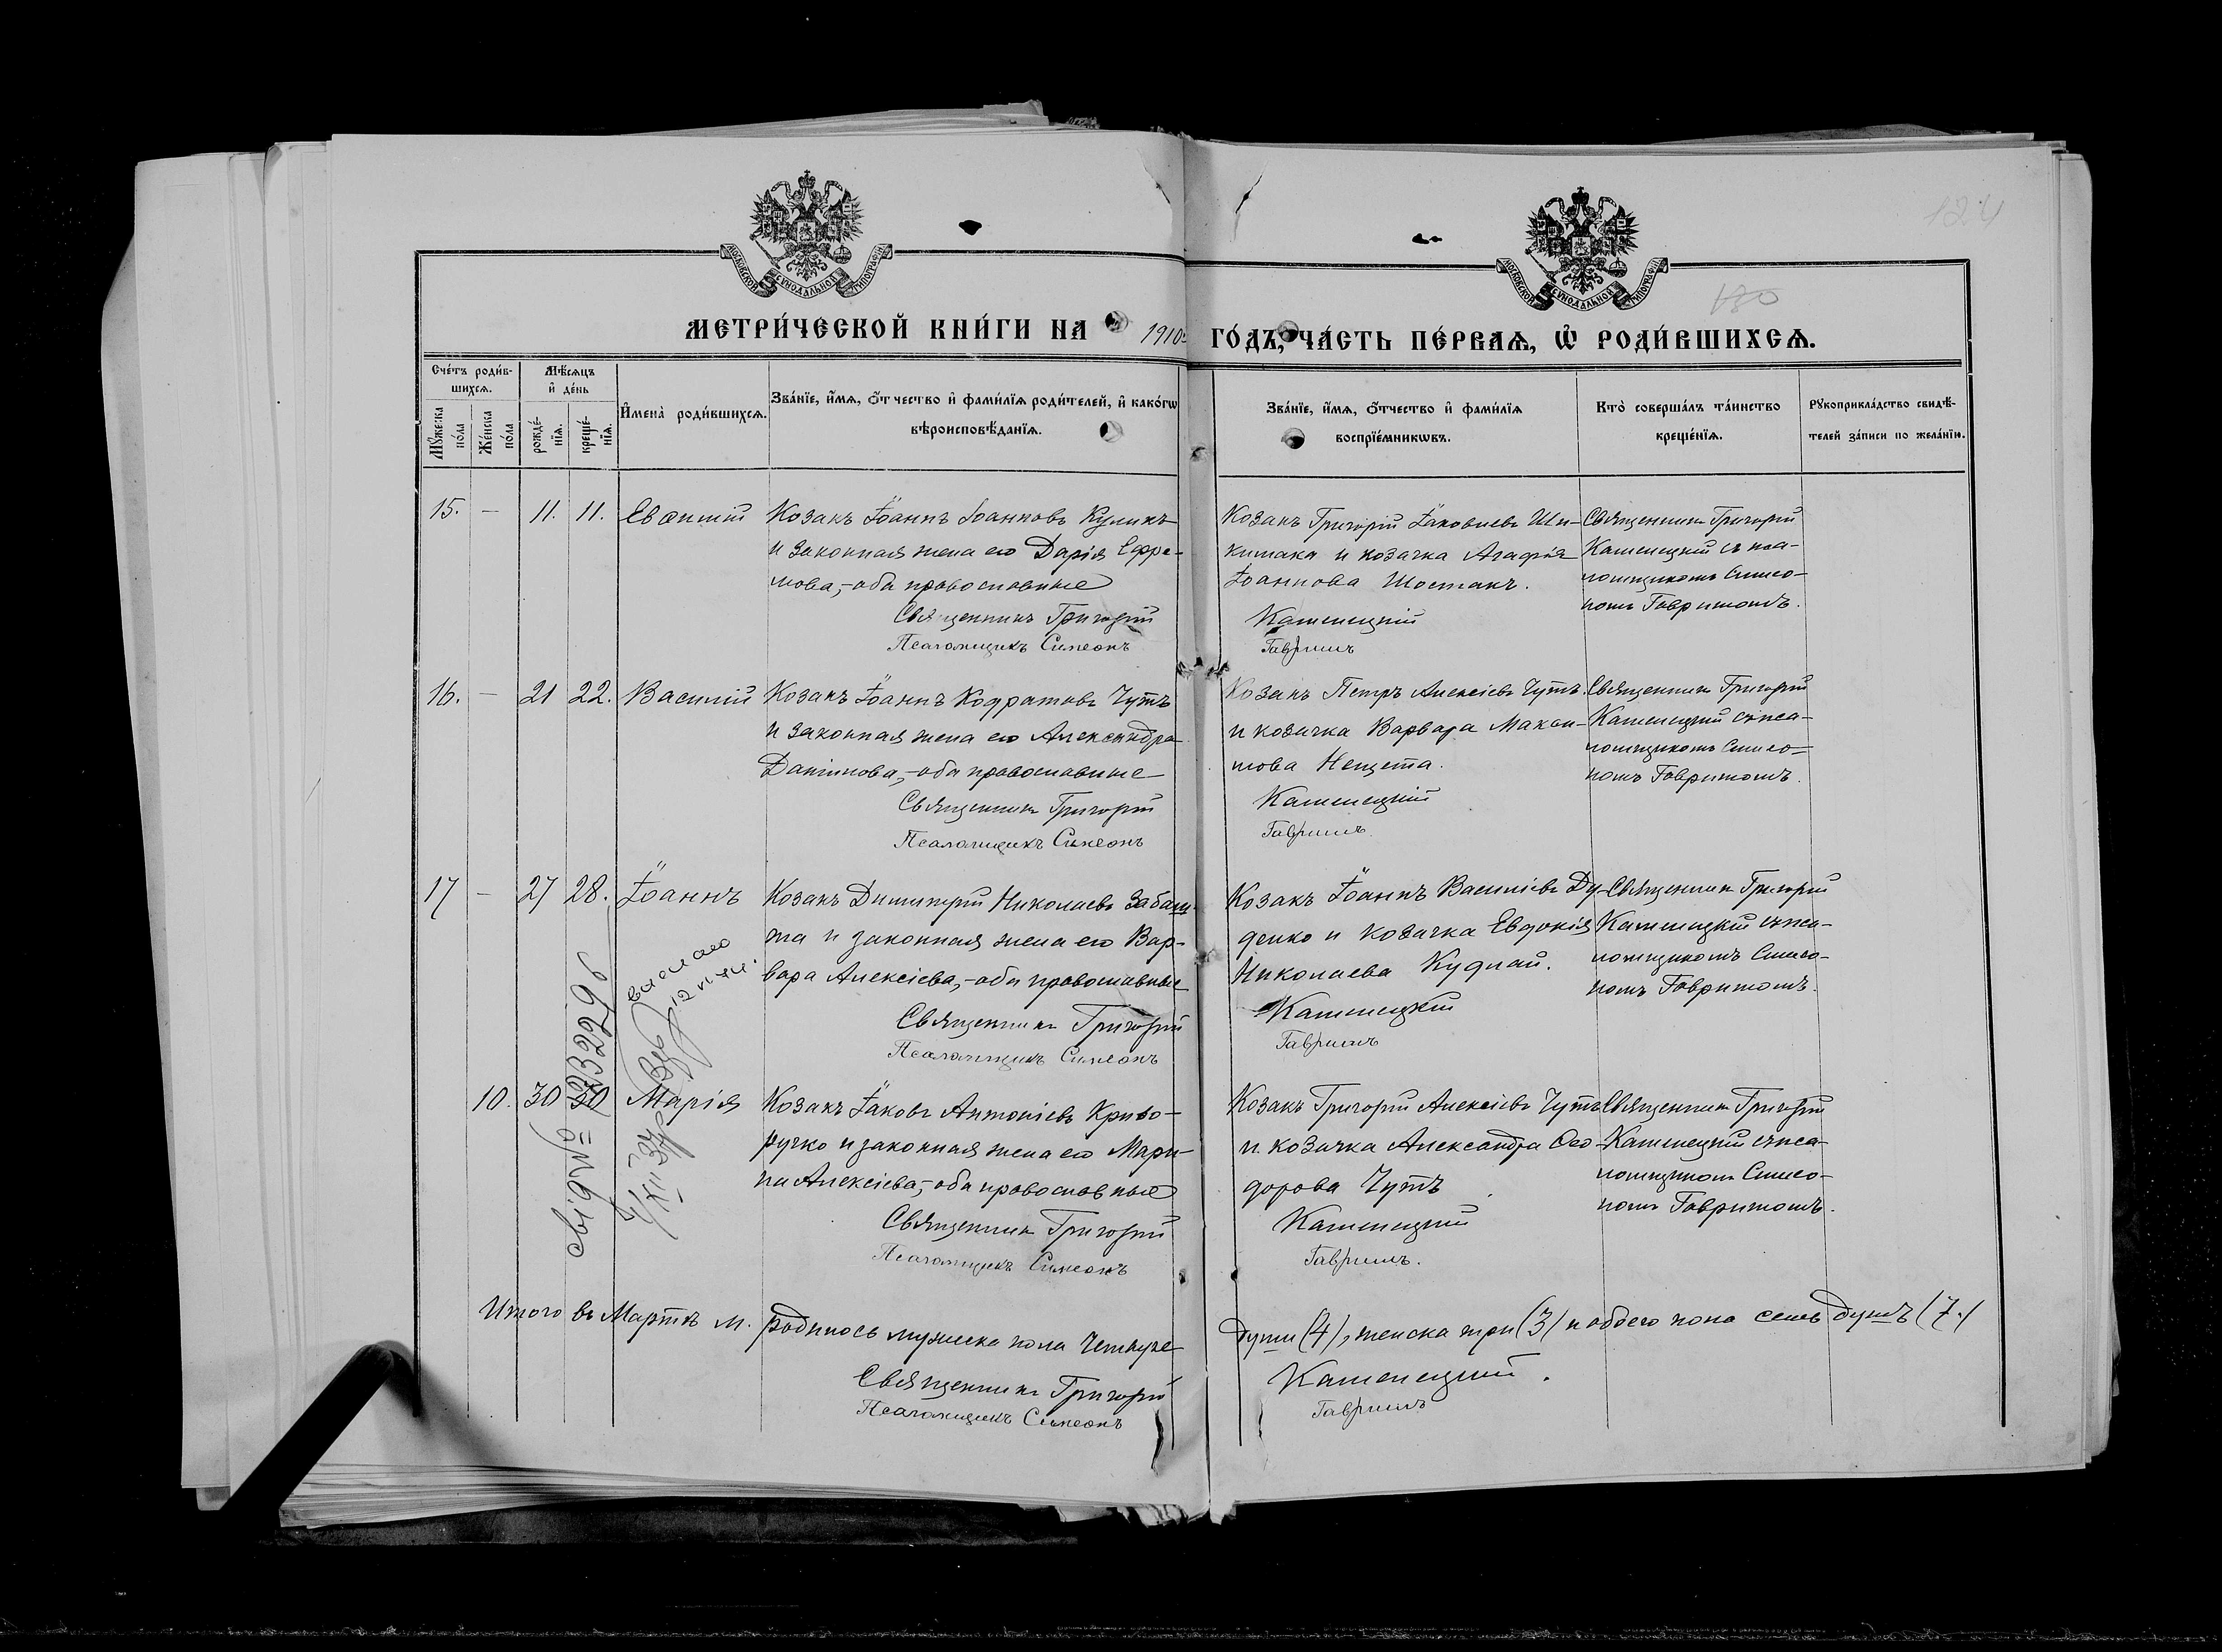 124
МОСКОВСКОЙ СѴНОДАЛЬНОЙ ТИПОГРАФІИ
МОСКОВСКОЙ СѴНОДАЛЬНОЙ ТИПОГРАФІИ
МЕТРИ́ЧЕСКОЙ КНИ́ГИ НА 1910 ГО́ДЪ, ЧА́СТЬ ПЕ́РВАѦ, Ѡ҆ РОДИ́ВШИХСѦ.
Сче́тъ роди́в-
шихсѧ.
Мꙋ́жеска по́ла
Же́нска по́ла
Мѣ́сѧцъ
и҆ де́нь
рожде́-
нїѧ.
креще́-
нїѧ.
И҆мена̀ роди́вшихсѧ.
Зва́нїе, и҆́мѧ, ѻ҆́тчество и҆ фами́лїѧ роди́телей, и҆ како́гѡ
вѣроисповѣ́данїѧ.
Зва́нїе, и҆́мѧ, ѻ҆́тчество и҆ фами́лїѧ
воспрїе́мникѡвъ.
Кто̀ соверша́лъ та́инство
креще́нїѧ.
Рꙋкоприкла́дство свидѣ́-
телей за́писи по жела́нїю.
15. — 11. 11.
Козакъ Іоаннъ Іоанновъ Куликъ
и законная жена его Дарія Ефре-
мова,-оба православные
Священникъ Григорій
Псаломщикъ Симеонъ
Козакъ Григорій Іаковлевъ
и козачка Агафія
Іоаннова Шостакъ.
Каменецкій
Гавришъ
Священникъ Григорій
Каменецкій съ пса-
ломщикомъ Симео-
номъ Гавришомъ.
16. — 21 22. Василій
Козакъ Іоаннъ Кодратовъ Чутъ
и законная жена его Александра
Даніилова,-оба православные
Священникъ Григорій
Псаломщикъ Симеонъ
Козакъ Петръ Алексіевъ Чутъ
и козачка Варвара Макси-
мова Нещета.
Каменецкій
Гавришъ.
Священникъ Григорій
Каменецкій съ пса-
ломщикомъ Симео-
номъ Гавришомъ.
17 — 27 28. Іоаннъ
Козакъ Димитрій Николаевъ Забаш-
та и законная жена его Вар-
вара Алексіева,-оба православные
Священникъ Григорій
Псаломщикъ Симеонъ
Козакъ Іоаннъ Василіевъ Ду-
денко и козачка Евдокія
Николаева Кудлай.
Каменецкій
Гавришъ
Священникъ Григорій
Каменецкій съ пса-
ломщикомъ Симео-
номъ Гавришомъ.
10. 30 30 Марія
Козакъ Іаковъ Антоніевъ Криво-
ручко и законная жена его Мари-
на Алексіева,-оба православные
Священникъ Григорій
Псаломщикъ Симеонъ
Козакъ Григорій Алексіевъ Чутъ
и козачка Александра Ѳео-
дорова Чутъ
Каменецкій
Гавришъ.
Священникъ Григорій
Каменецкій съ пса-
ломщикомъ Симео-
номъ Гавришомъ.
Итого въ Мартѣ м. родилось мужеска пола четыре
души (4), женска три (3) и обоего пола семь душъ (7.)
Священникъ Григорій
Псаломщикъ Симеонъ
Каменецкій.
Гавришъ